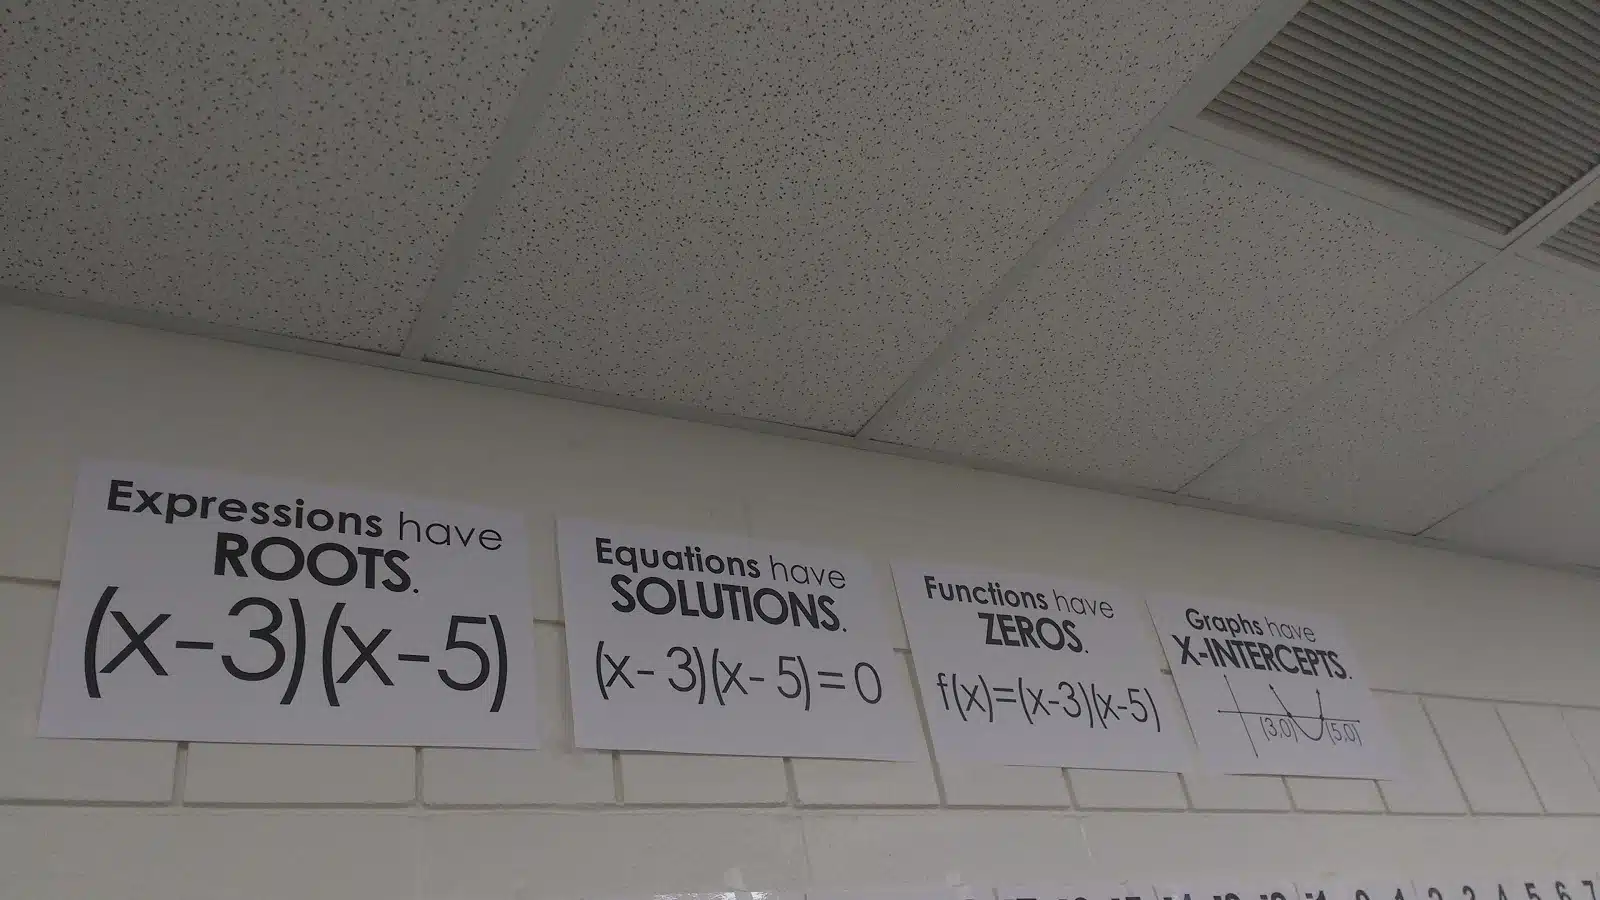 Expressions have
ROOTS.
(x-3)(x-5)
Equations have
SOLUTIONS.
(x-3)(x-5)=0
Functions have
ZEROS.
f(x)=(x-3)(x-5)
Graphs have
X-INTERCEPTS.
(3,0) (5,0)